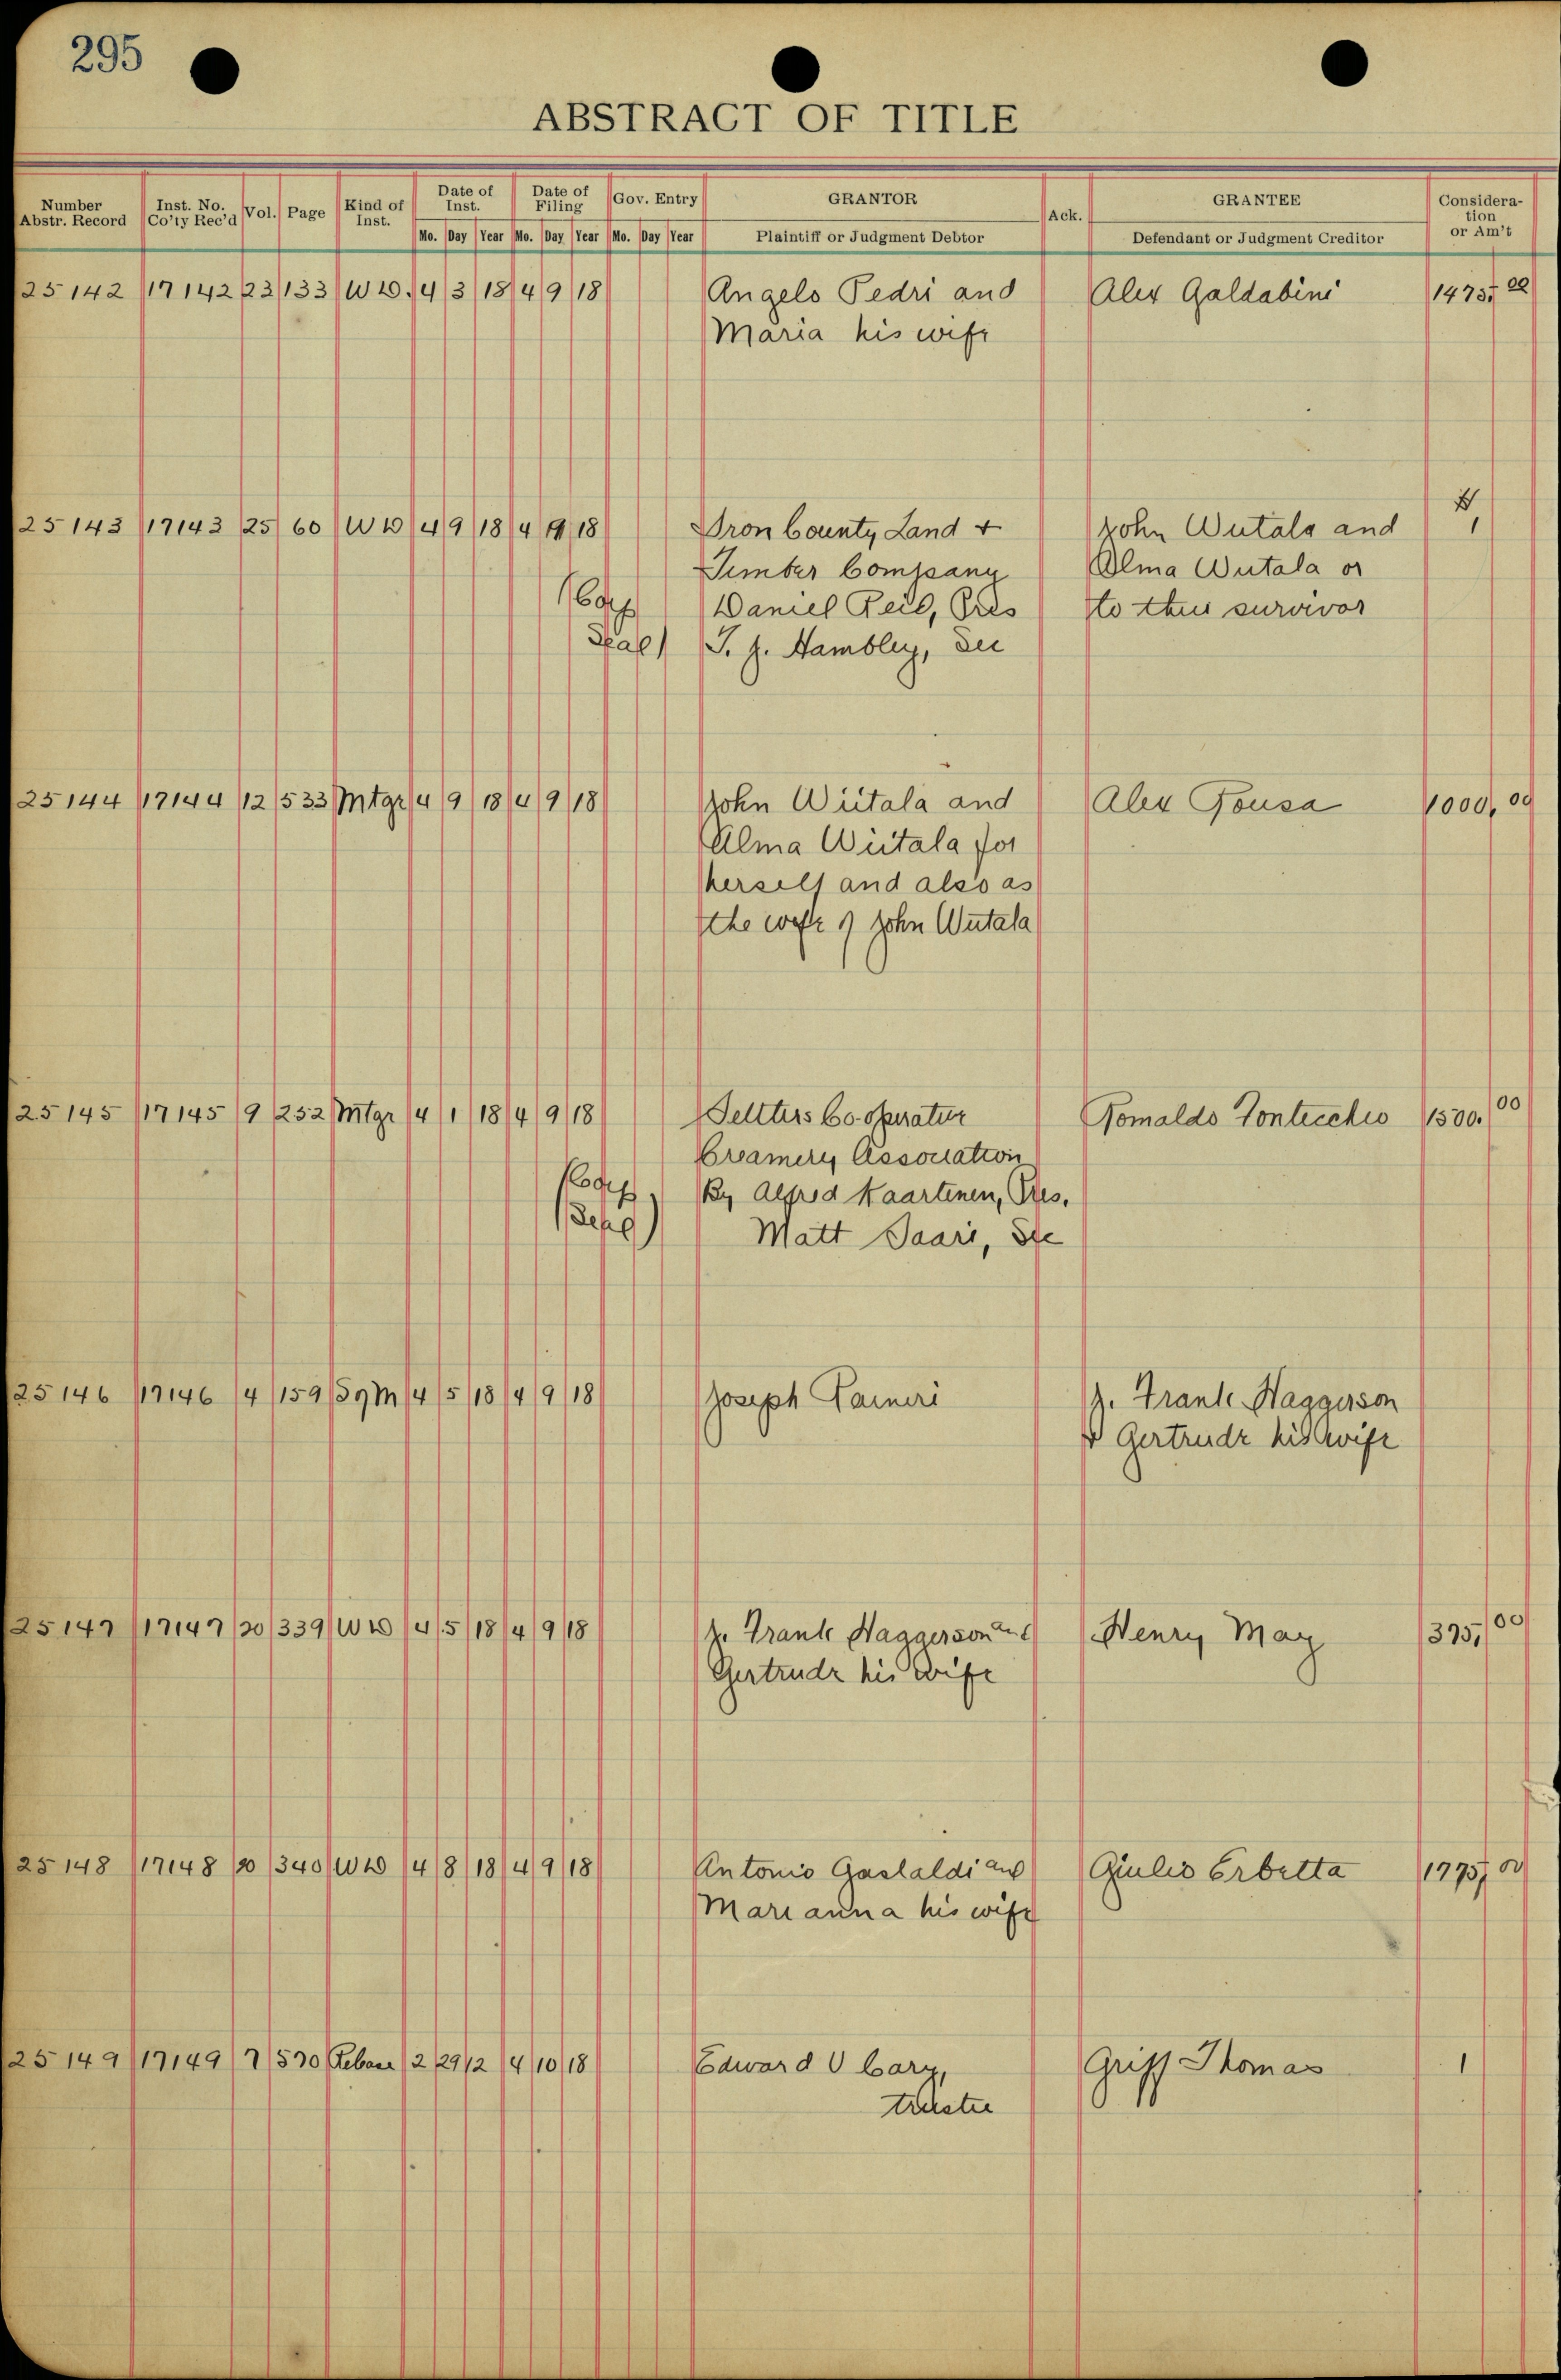 295
ABSTRACT OF TITLE
Number Abstr. Record Inst. No. Co'ty Rec'd Vol. Page Kind of Inst. Date of Inst. Date of Filing Gov. Entry GRANTOR Ack. GRANTEE Consideration or Am't
Mo. Day Year Mo. Day Year Mo. Day Year Plaintiff or Judgment Debtor Defendant or Judgment Creditor
25142 17142 23 133 WD. 4 3 18 4 9 18 Angelo Pedri and Alex Galdabini 1475.00
Maria his wife
25143 17143 25 60 WD 4 9 18 4 9 18 Iron County Land + John Wiitala and $1
Timber Company Alma Wiitala or
(Corp Daniel Reid, Pres to the survivor
Seal) T. J. Hambley, Sec
25144 17144 12 533 Mtge 4 9 18 4 9 18 John Wiitala and Alex Pousa 1000.00
Alma Wiitala for
herself and also as
the wife of John Wiitala
25145 17145 9 252 Mtge 4 1 18 4 9 18 Settlers Co-operative Romaldo Fontecchio 1500.00
Creamery Association
(Corp By Alfred Kaartinen, Pres.
Seal) Matt Saari, Sec
25146 17146 4 159 M 4 5 18 4 9 18 Joseph Raineri J. Frank Haggerson
& Gertrude his wife
25147 17147 20 339 WD 4 5 18 4 9 18 J. Frank Haggerson and Henry May 375.00
Gertrude his wife
25148 17148 20 340 WD 4 8 18 4 9 18 Antonio Gastaldi and Giulio Erbetta 1775.00
Marianna his wife
25149 17149 7 570 Release 2 29 12 4 10 18 Edward V Cary, Griff Thomas 1
trustee